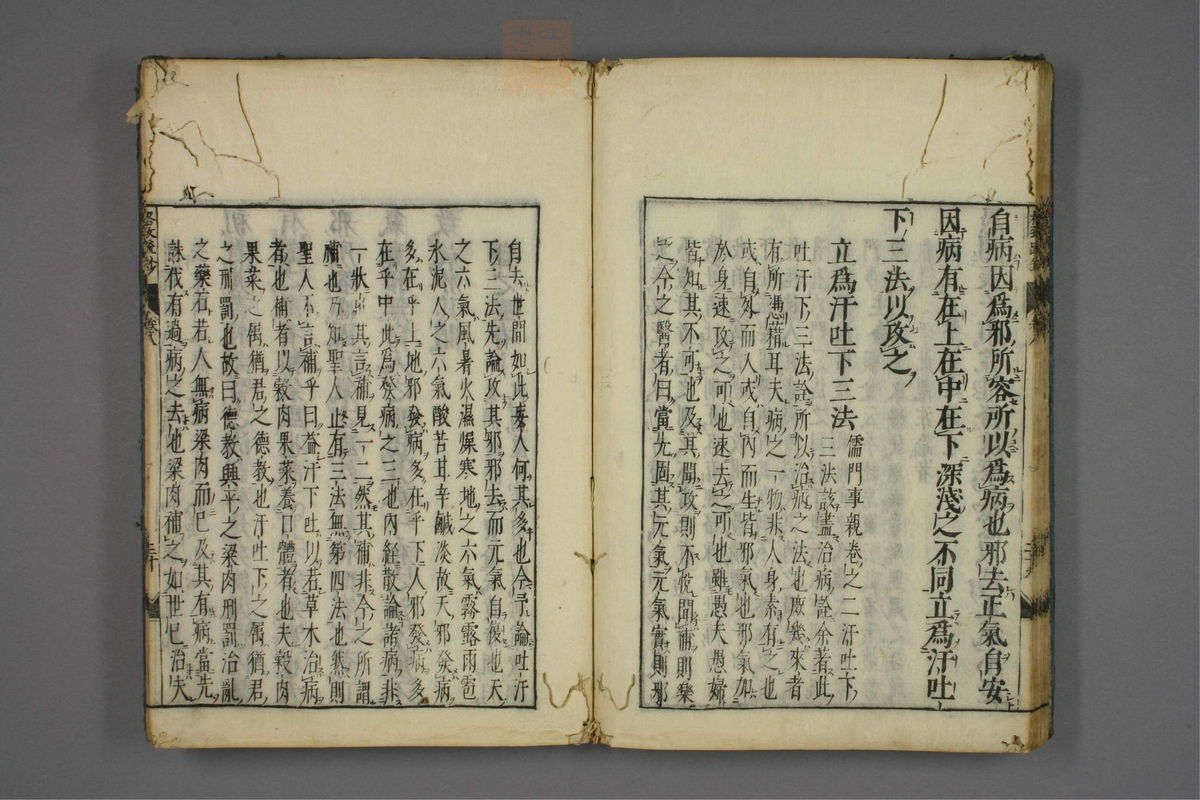 自病因爲邪所容所以爲病也邪去正氣自安
因病有在上在中在下深淺之不同立爲汗吐
下三法以攻之
立爲汗吐下三法
儒門事親卷之二汗吐下
三法該盡治病詮余著此
吐汗下三法詮所以治病之法也庶幾來者
有所憑藉耳夫病之一物非人身素有之也
或自外而入或自內而生皆邪氣也邪氣加
於身速攻之可也速去之可也雖愚夫愚婦
皆知其不可也及其聞攻則不悅聞補則樂
之今之醫者曰當先固其元氣元氣實則邪
自去世間如此妄人何其多也今予論吐汗
下三法先論攻其邪邪去而元氣自復也天
之六氣風暑火濕燥寒地之六氣霧露雨雹
氷泥人之六氣酸苦甘辛鹹淡故天邪發病
多在乎上地邪發病多在乎下人邪發病多
在乎中此爲發病之三也內経散論諸病非
一狀也其言補見一二然其補非今之所謂
補也乃知聖人止有三法無第四法也然則
聖人不言補乎曰益汗下吐以若草木治病
者也補者以穀肉果菜養口體者也夫穀肉
果菜之属猶君之德教也汗吐下之属猶君
之刑罰也故曰德教興平之梁肉刑罰治亂
之藥石若人無病梁肉而已及其有病當先
誅伐有過病之去也梁肉補之如世已治夫